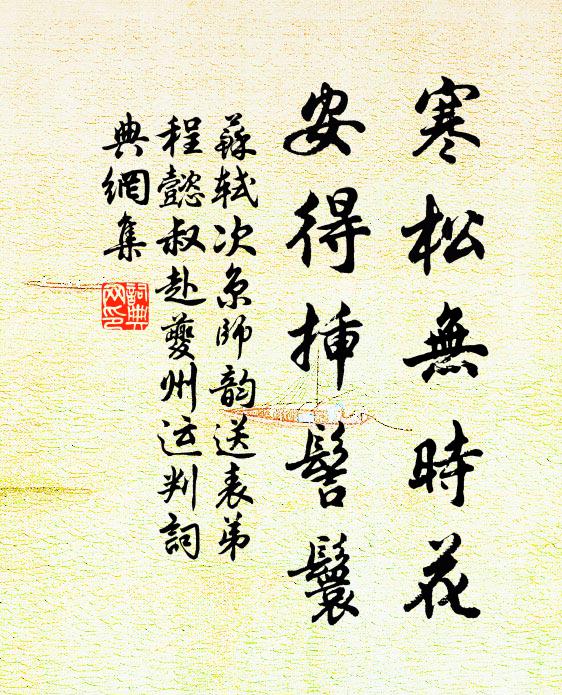 寒松無時花
安得插髻鬟
蘇軾次京師韵送表弟
程懿叔赴夔州运判詞
典網集
詞典
网印